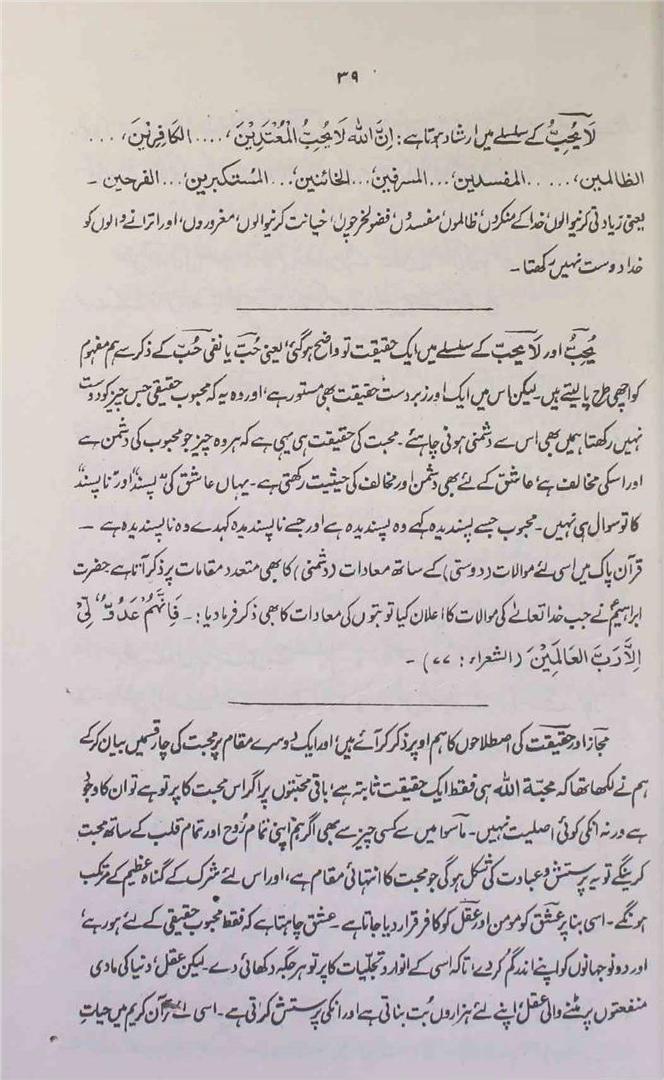 ۳۹
لَا یُحِبُّ کے سلسلے میں ارشاد ہوتا ہے: اِنَّ اللہ لَا یُحِبُّ الْمُعْتَدِیْنَ، .... الکَافِرِیْنَ، ...
الظالمین، .... المفسدین، ... المسرفین، ... الخائنین، ... المستکبرین، ... الفرحین ۔
یعنی زیادتی کرنیوالوں، خدا کے منکروں، ظالموں، مفسدوں، فضولخرچوں، خیانت کرنیوالوں، مغروروں، اور اترانے والوں کو
خدا دوست نہیں رکھتا ۔
یُحِبُّ اور لَا یُحِبُّ کے سلسلے میں، ایک حقیقت تو واضح ہوگئی، یعنی حُبّ یا نفی حُبّ کے ذکر سے ہم مفہوم
کو اچھی طرح پالیتے ہیں۔ لیکن اس میں ایک اور زبردست حقیقت بھی مستور ہے، اور وہ یہ کہ محبوب حقیقی جس چیز کو دوست
نہیں رکھتا ہمیں بھی اس سے دشمنی ہونی چاہئے۔ محبت کی حقیقت ہی یہی ہے کہ ہر وہ چیز جو محبوب کی دشمن ہے
اور اسکی مخالف ہے، عاشق کے لئے بھی دشمن اور مخالف کی حیثیت رکھتی ہے۔ یہاں عاشق کی ”پسند“ اور ”ناپسند“
کا تو سوال ہی نہیں۔ محبوب جسے پسندیدہ کہے وہ پسندیدہ ہے اور جسے ناپسندیدہ کہدے وہ ناپسندیدہ ہے ۔
قرآن پاک میں اسی لئے موالات (دوستی) کے ساتھ معادات (دشمنی) کا بھی متعدد مقامات پر ذکر آتا ہے۔ حضرت
ابراہیمؑ نے جب خدا تعالےٰ کی موالات کا اعلان کیا تو بتوں کی معادات کا بھی ذکر فرمادیا: ۔ فَاِنَّهُمْ عَدُوٌّ لِّیْ
اِلَّا رَبَّ العَالَمِیْنَ (الشعراء: ۷۷) ۔
مجاز اور حقیقت کی اصطلاحوں کا ہم اوپر ذکر کر آئے ہیں، اور ایک دوسرے مقام پر محبت کی چار قسمیں بیان کر کے
ہم نے لکھا تھا کہ محبۃ اللہ ہی فقط ایک حقیقت ثابتہ ہے، باقی محبتوں پر اگر اس محبت کا پرتو ہے تو ان کا وجود
ہے ورنہ انکی کوئی اصلیت نہیں۔ ماسوا میں سے کسی چیز سے بھی اگر ہم اپنی تمام رُوح اور تمام قلب کے ساتھ محبت
کرینگے تو یہ پرستش و عبادت کی شکل ہوگی جو محبت کا انتہائی مقام ہے، اور اس لئے شرک کے گناہ عظیم کے مرتکب
ہونگے۔ اسی بنا پر عشق کو مومن اور عقل کو کافر قرار دیا جاتا ہے۔ عشق چاہتا ہے کہ فقط محبوب حقیقی کے لئے ہو رہے،
اور دونو جہانوں کو اپنے اندر گم کر دے، تاکہ اسی کے انوار و تجلیات کا پرتو ہر جگہ دکھائی دے۔ لیکن عقل، دنیا کی مادی
منفعتوں پر مٹنے والی عقل، اپنے لئے ہزاروں بُت بناتی ہے اور انکی پرستش کراتی ہے۔ اسی لئے قرآن کریم میں حیاتِ